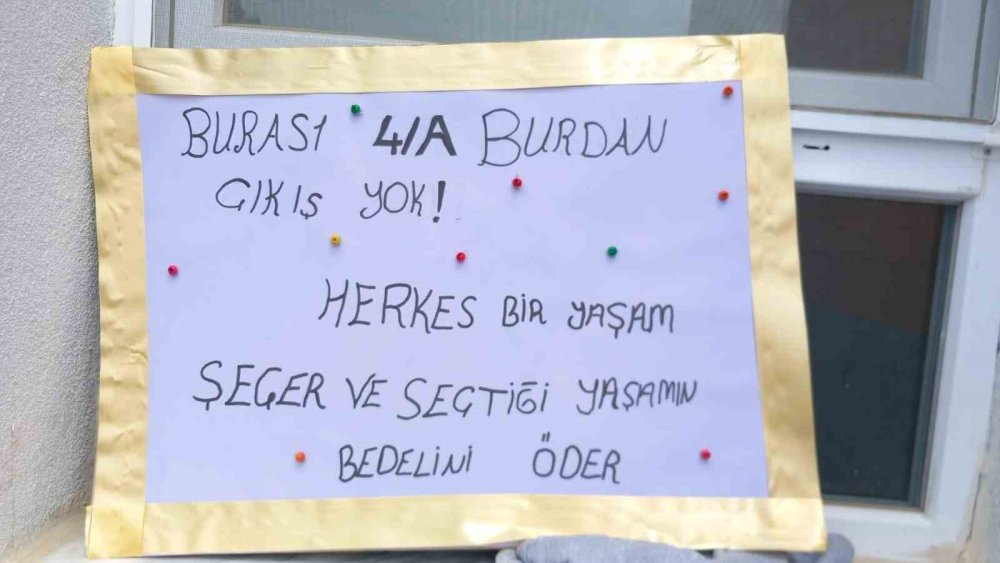 BURASI 4/A BURDAN
CIKIŞ YOK!
HERKES BİR YAŞAM
ŞEÇER VE SEÇTİĞİ YAŞAMIN
BEDELİNİ ÖDER